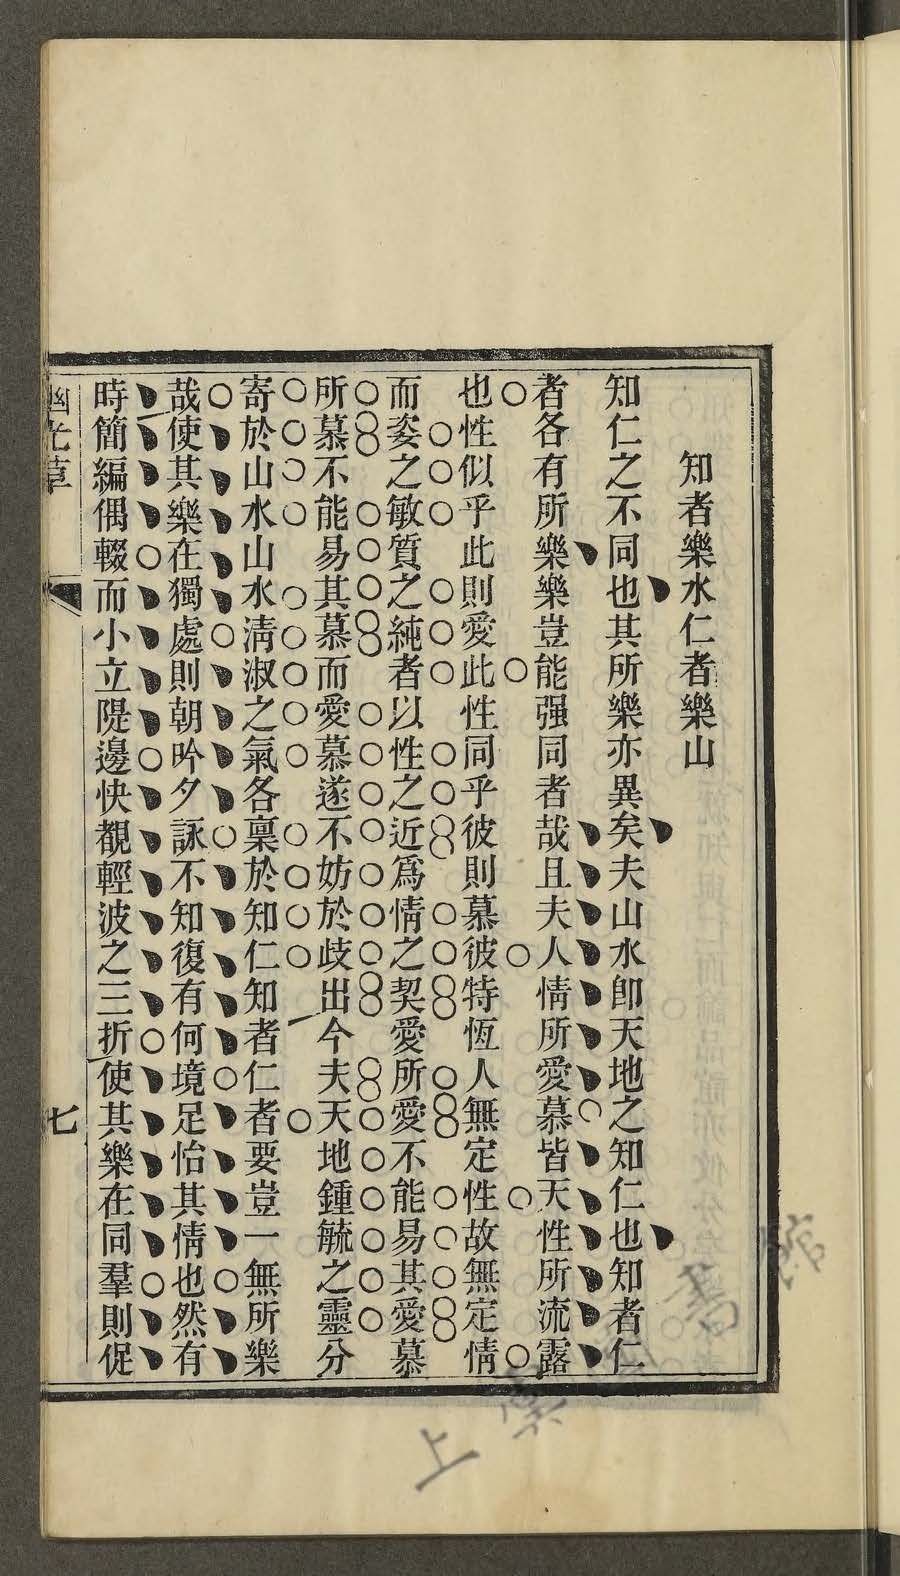 知者樂水仁者樂山
知仁之不同也其所樂亦異矣夫山水卽天地之知仁也知者仁
者各有所樂樂豈能强同者哉且夫人情所愛慕皆天性所流露
也性似乎此則愛此性同乎彼則慕彼特恆人無定性故無定情
而姿之敏質之純者以性之近爲情之契愛所愛不能易其愛慕
所慕不能易其慕而愛慕遂不妨於歧出今夫天地鍾毓之靈分
寄於山水山水淸淑之氣各稟於知仁知者仁者要豈一無所樂
哉使其樂在獨處則朝吟夕詠不知復有何境足怡其情也然有
時簡編偶輟而小立隄邊快覩輕波之三折使其樂在同羣則促
七
上
書
館